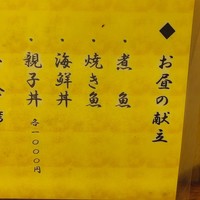 ◆お昼の献立
・煮魚
・焼き魚
・海鮮丼
・親子丼 各一〇〇〇円